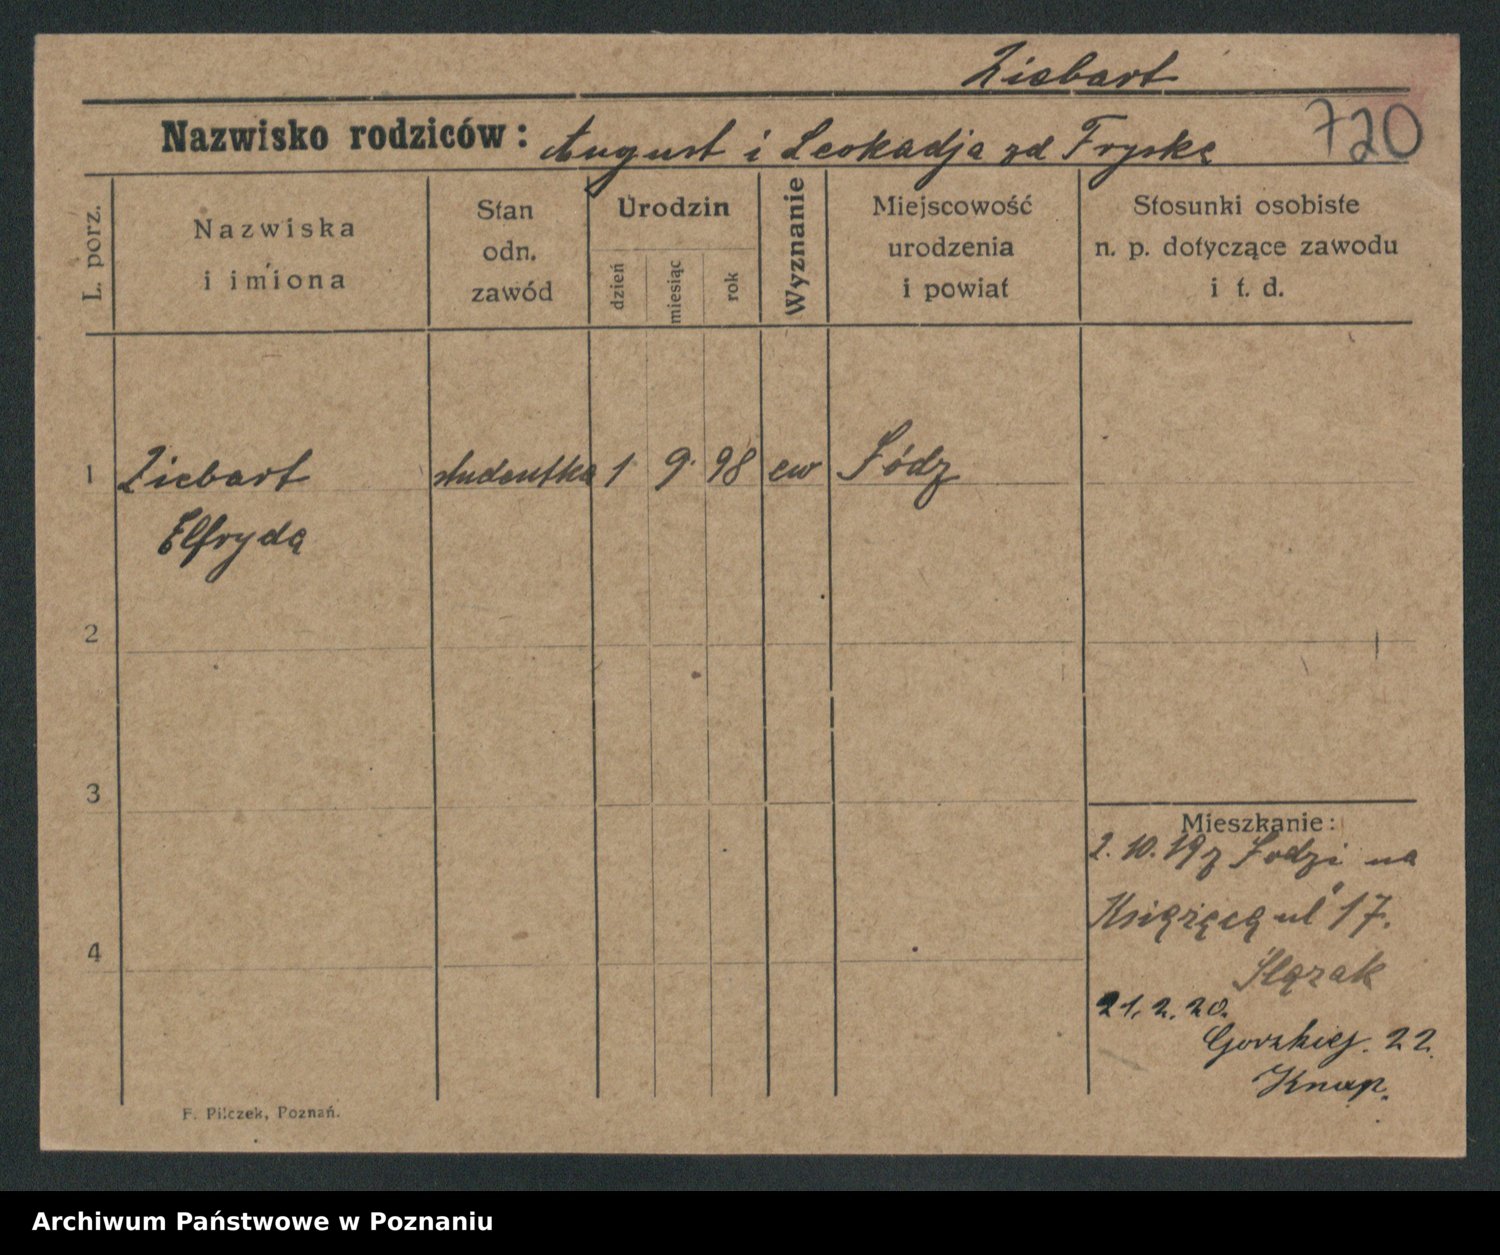 Ziebart
Nazwisko rodziców: August i Leokadja zd Fryske
720
L. porz.
Nazwiska
i imiona
Stan
odn.
zawód
Urodzin
dzień
miesiąc
rok
Wyznanie
Miejscowość
urodzenia
i powiat
Stosunki osobiste
n. p. dotyczące zawodu
i t. d.
1 Ziebart studentka 1 9. 98 ew Łódz
Elfryda
2
3
Mieszkanie:
2. 10. 19 z Łodzi na
Książęcą ul 17.
4
Ślązak
21. 2. 20.
22.
Knap.
F. Pilczek, Poznań.
Archiwum Państwowe w Poznaniu